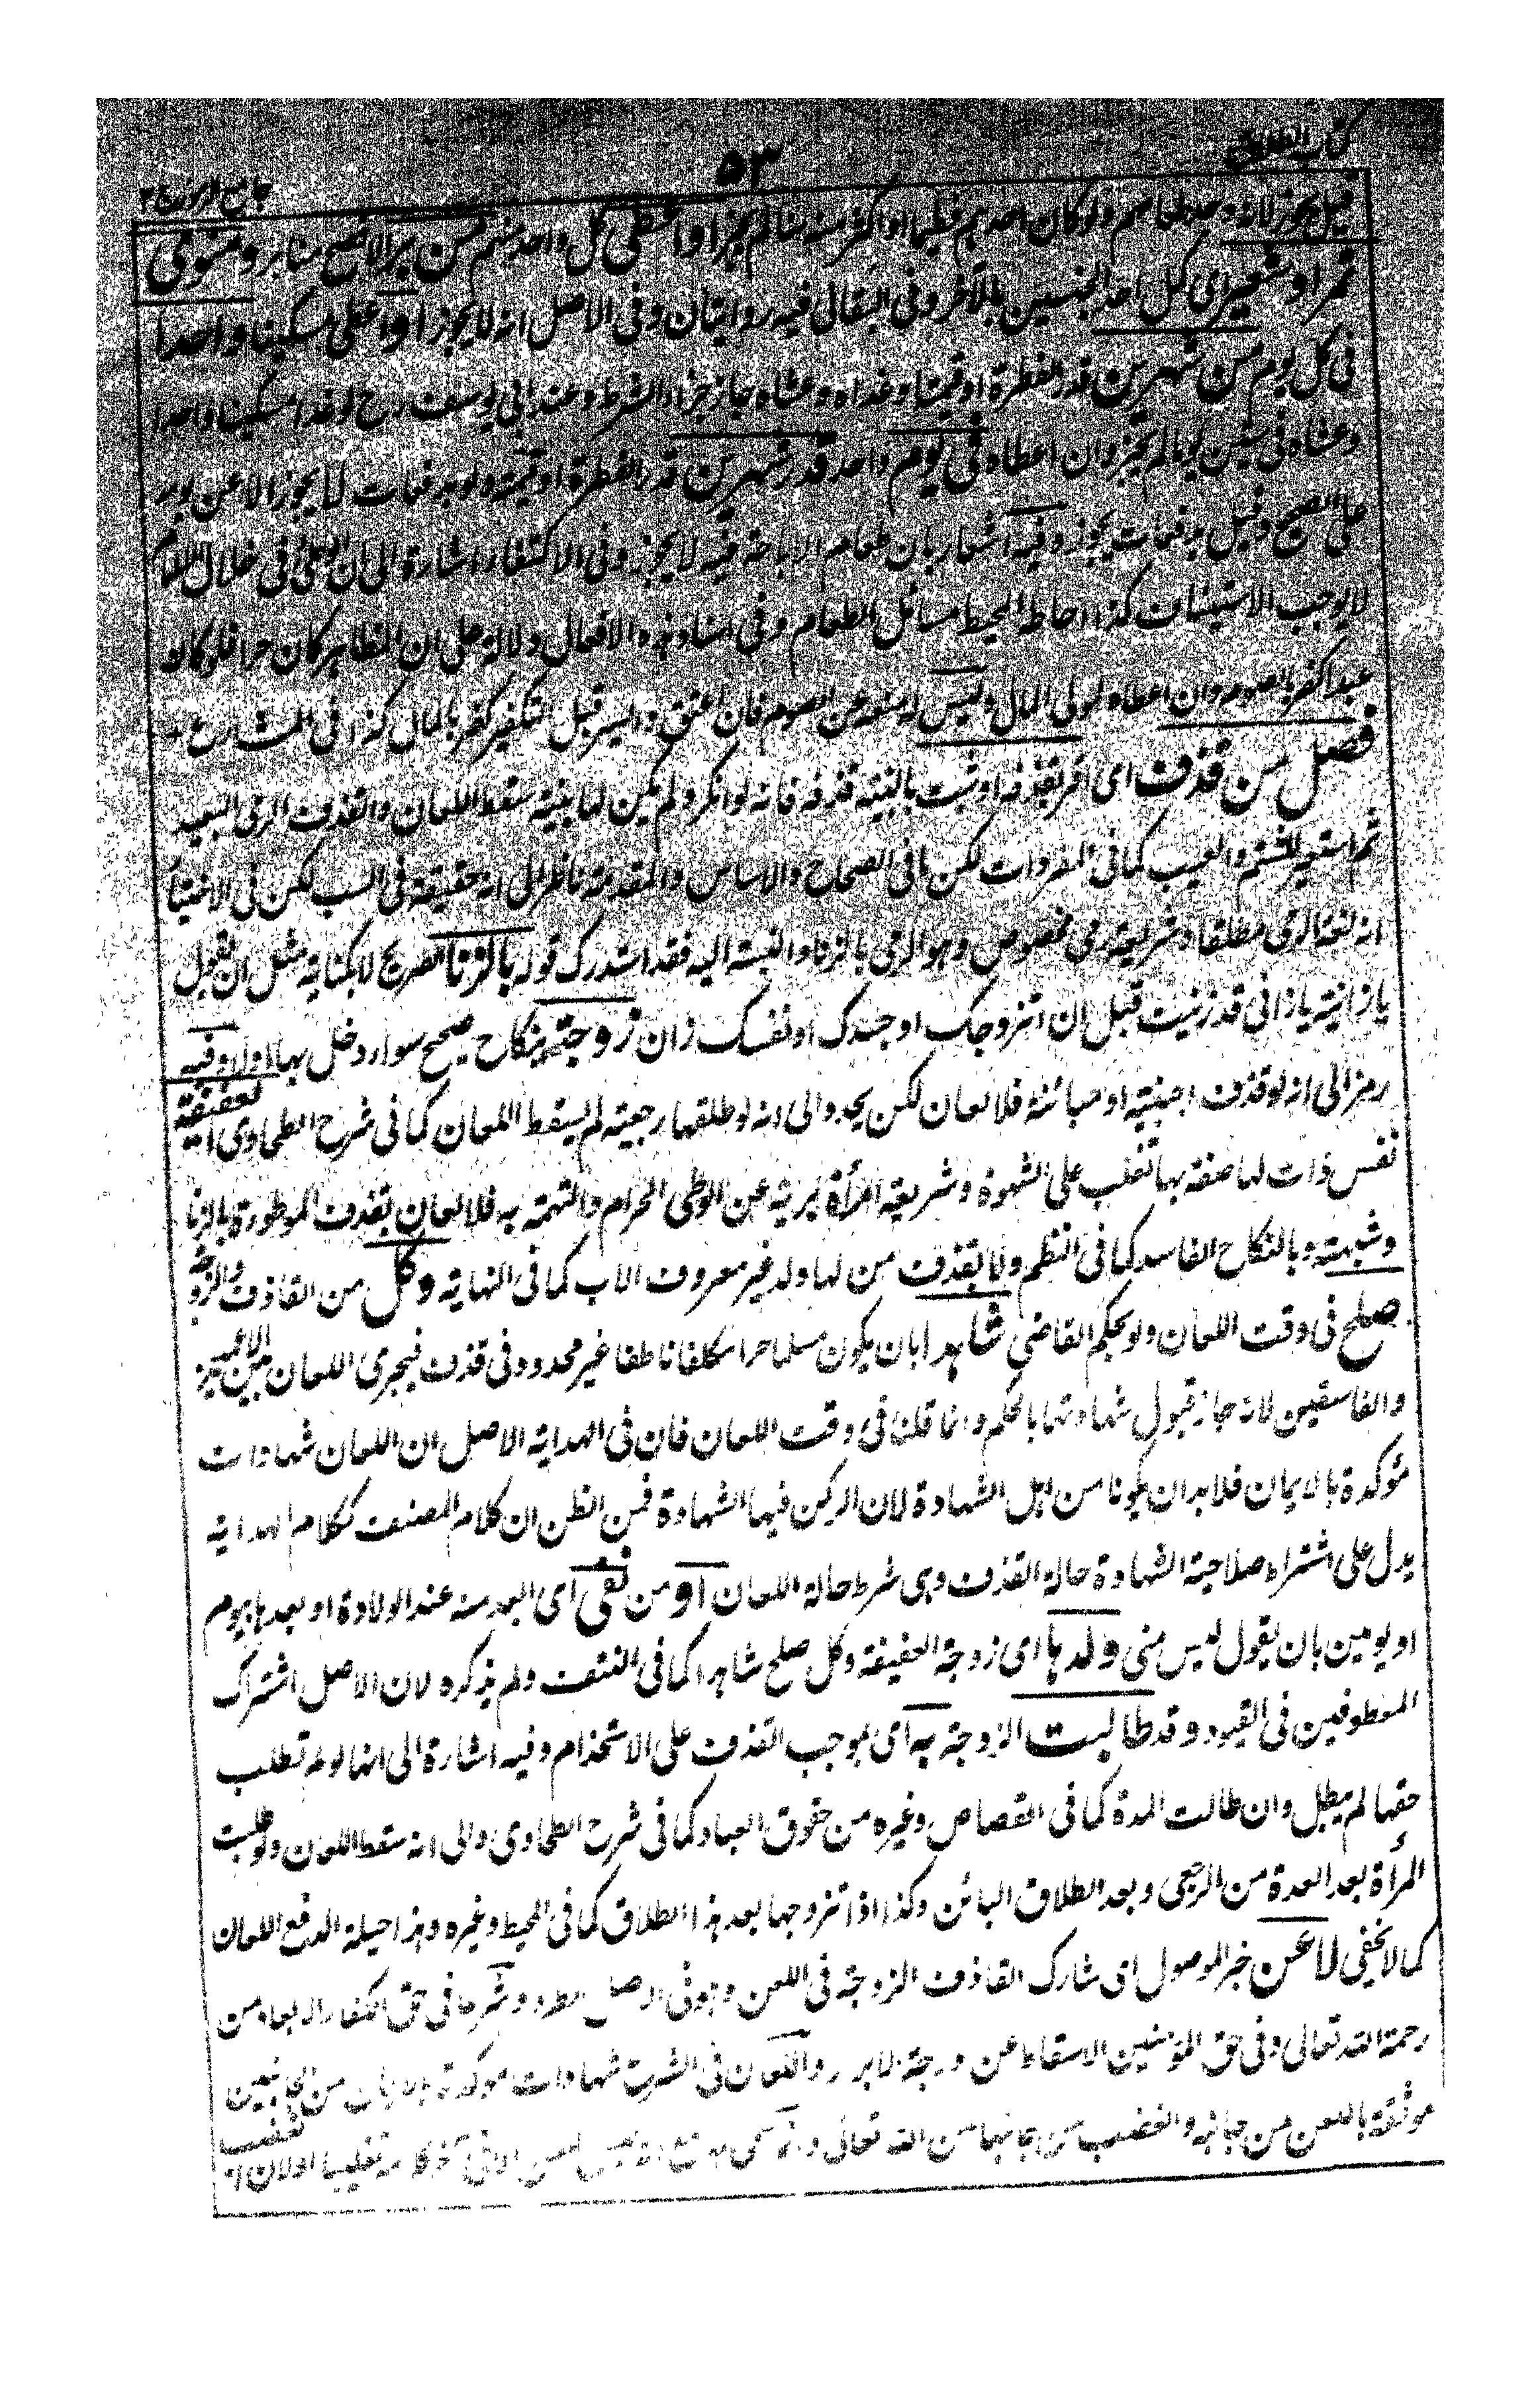 كتاب الطلاق
٥٣
جامع الرموز ج ٢
قيل يجوز لانه وجد طعامهم ولو كان احدهم فطيما او اكثر منه سنا لم يجز او اعطى كل واحد منهم من بر الاصح منا بر ومنوى
تمر او شعير اى كمل احد الجنسين بالآخر وفى البقالى فيه روايتان وفى الاصل انه لا يجوز او اعطى مسكينا واحدا
فى كل يوم من شهرين قدر الفطرة او قيمتها وغداه وعشاه جاز جزاء الشرط وعند ابى يوسف رح لو غدا مسكينا واحدا
وعشاه فى ستين يوما لم يجز وان اعطاه فى يوم واحد قدر شهرين قدر الفطرة او قيمته ولو بدفعات لا يجوز الا عن يومه
على الصحيح وقيل بدفعات يجوز وفيه اشعار بان طعام الاباحة فيه لا يجوز وفى الاكتفاء اشارة الى ان الوطى فى خلال الاطعام
لا يوجب الاستيناف كذا احاط المحيط مسائل الطعام وفى اسناد هذه الافعال دلالة على ان المظاهر كان حرا فلو كان
عبدا كفر بالصوم وان اعطاه المولى المال وليس له منعه عن الصوم فان اعتق وايسر قبل التكفير كفر بالمال كذا فى المشارع
فصل من قذف اى اقر بقذفه او ثبت بالبينة قذفه فانه لو انكر ولم يكن لها بينة سقط اللعان والقذف الرمى البعيد
ثم استعير للشتم والعيب كما فى المفردات لكن ما فى الصحاح والاساس والمقدمة ناظر الى انه حقيقة فى السب لكن فى الاختيار
انه لغة الرمى مطلقا وشريعة رمى مخصوص وهو الرمى بالزنا والنسبة اليه فقد استدرك قوله بالزنا الصريح لا بكناية مثل ان يقول
يا زانية يا زانى قد زنيت قبل ان اتزوجك او جسدك او نفسك زان زوجته بنكاح صحيح سواء دخل بها او لا وفيه
رمز الى انه لو قذف اجنبية او مبائنة فلا لعان لكن يحد والى انه لو طلقها رجعية لم يسقط اللعان كما فى شرح الطحاوى العفيفة
نفس ذات لها صفة بها تغلب على الشهوة وشريعة امرأة برئة عن الوطى الحرام والتهمة به فلا لعان بقذف الموطوءة بالزنا
وشبهته وبالنكاح الفاسد كما فى النظم ولا بقذف من لها ولد غير معروف الاب كما فى النهاية وكل من القاذف والزوجة
صلح فى وقت اللعان ولو بحكم القاضى شاهدا بان يكون مسلما حرا مكلفا ناطقا غير محدود فى قذف فيجرى اللعان بين الاعميين
والفاسقين لانه جاز قبول شهادتهما بالحكم وانما قلنا فى وقت اللعان فان فى الهداية الاصل ان اللعان شهادات
مؤكدة بالايمان فلا بد ان يكونا من اهل الشهادة لان الركن فيها الشهادة فمن الظن ان كلام المصنف ككلام الهداية
يدل على اشتراط صلاحية الشهادة حالة القذف وهى شرط حالة اللعان او من نفى اى البعد منه عند الولادة او بعدها بيوم
او يومين بان يقول ليس منى ولدها اى زوجة العفيفة وكل صلح شاهدا كما فى النتف ولم يذكره لان الاصل اشتراك
المعطوفين فى القيود وقد طالبت الزوجة به اى بموجب القذف على الاستخدام وفيه اشارة الى انها لو لم تطلب
حقها لم يبطل وان طالت المدة كما فى القصاص وغيره من حقوق العباد كما فى شرح الطحاوى والى انه سقط اللعان ولو طلبت
المرأة بعد العدة من الرجعى وبعد الطلاق البائن وكذا اذا تزوجها بعد هذا الطلاق كما فى المحيط وغيره وهذا حيلة لدفع اللعان
كما لا يخفى لاعن خبر الموصول اى شارك القاذف الزوجة فى اللعن وهو فى الاصل الطرد وشرعا فى حق الكفار الابعاد من
رحمة الله تعالى وفى حق المؤمنين الاسقاط عن درجة الابرار واللعان فى الشرع شهادات مؤكدة بالايمان من الجانبين
موثقة باللعن من جانبه والغضب من جانبها من الله تعالى وانما سمى به